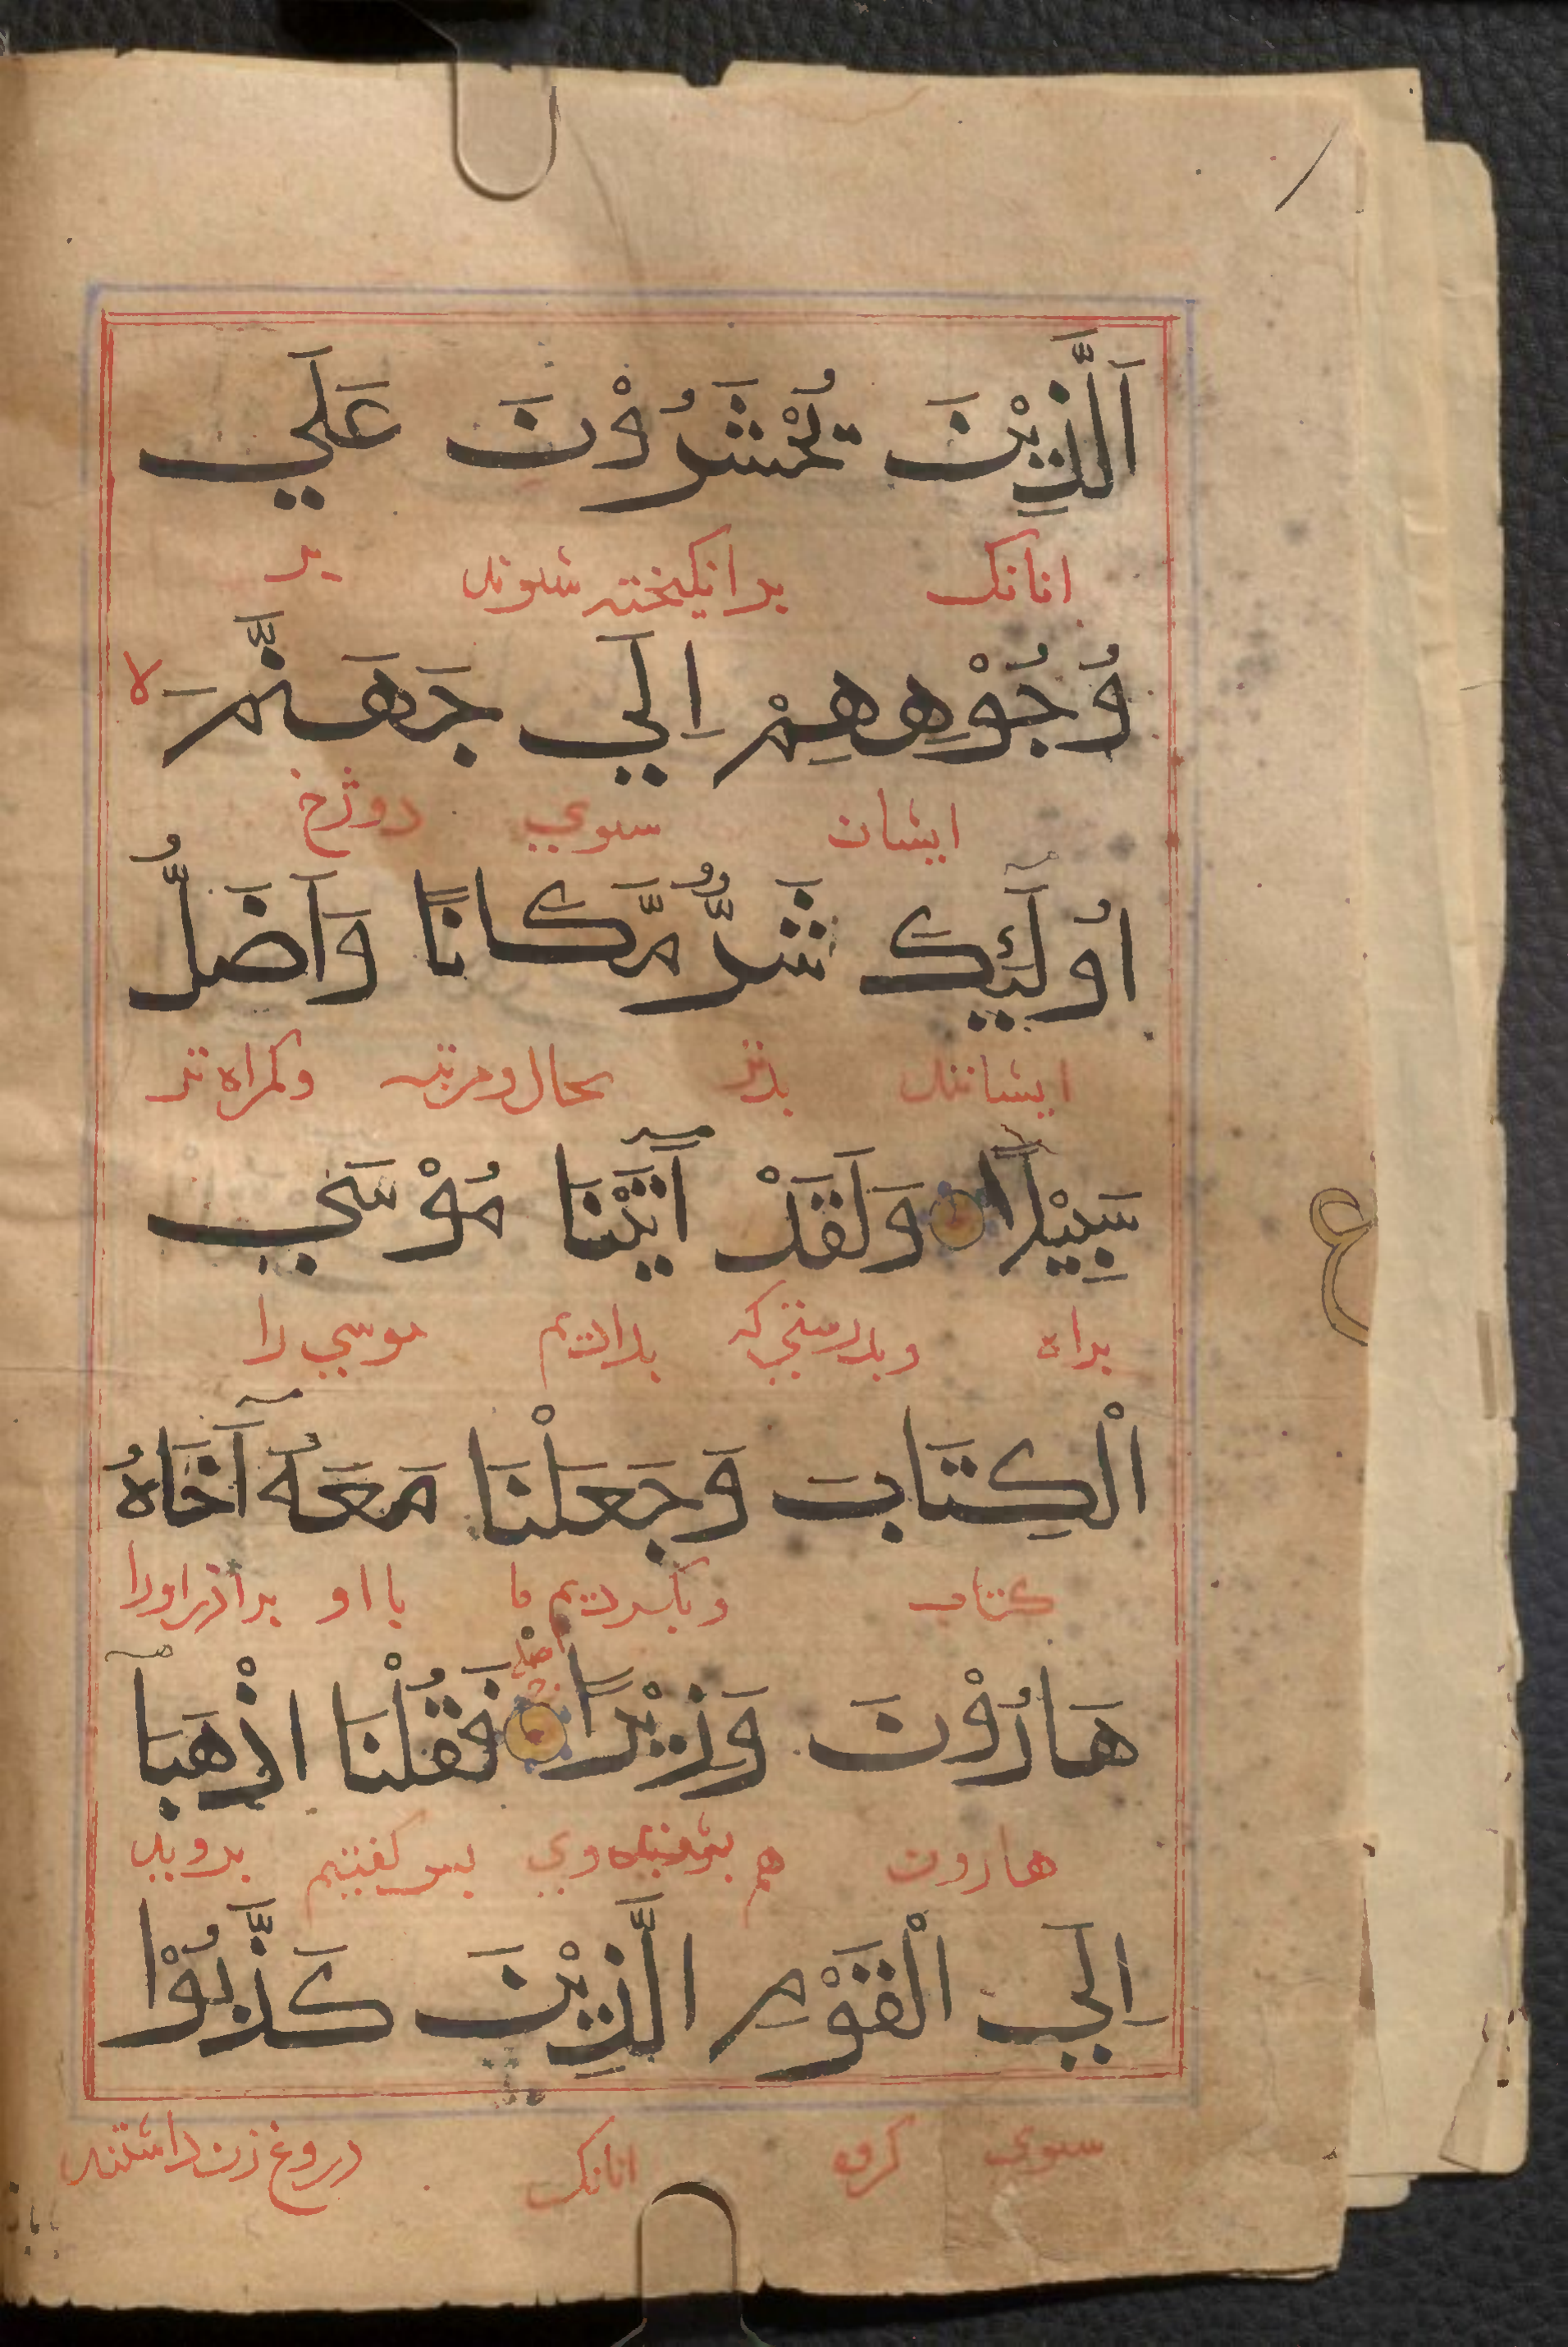 اَلَّذِيْنَ تُحْشَرُوْنَ عَلَي
انانک برانکیخته شوند بر
وُجُوْهِهِمْ اِلَي جَهَنَّمَ لا
ایشان سوي دوزخ
أُولَٓئِكَ شَرٌّ مَّكَانًا وَاَضَلُّ
ایشانند بدتر بحال ومرتبه وکمراه تر
سَبِيْلًا وَلَقَدْ اٰتَيْنَا مُوْسَي
براه وبدرستي که بدادیم موسي را
الْكِتَابَ وَجَعَلْنَا مَعَهُ اَخَاهُ
کتاب وبکردیم ما با او برادر اورا
هَارُوْنَ وَزِيْرًا فَقُلْنَا اذْهَبَا
هارون هم وي پس کفتیم بروید
اِلَي الْقَوْمِ الَّذِيْنَ كَذَّبُوْا
سوي کروه انانک دروغ زن داشتند
ع